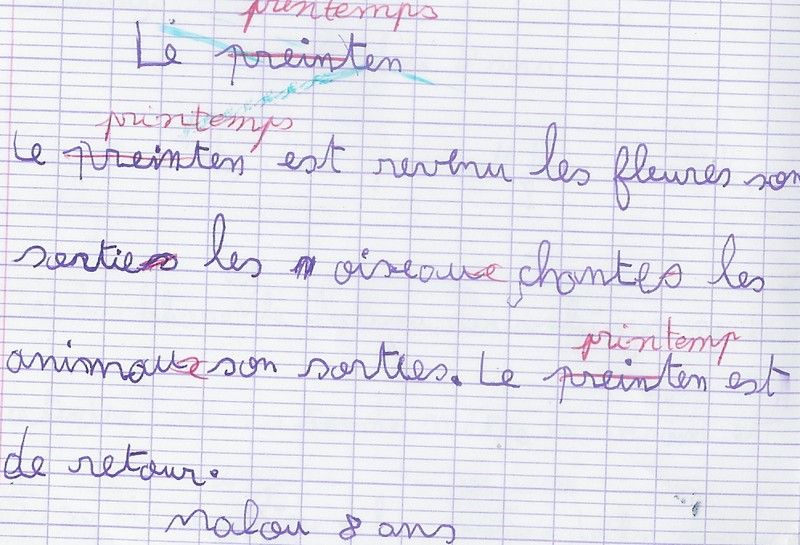 printemps
Le preinten
printemps
Le preinten est revenu les fleures son
sorties les oiseaux chantes les
printemp
animaux son sorties. Le preinten est
de retour.
Malou 8 ans